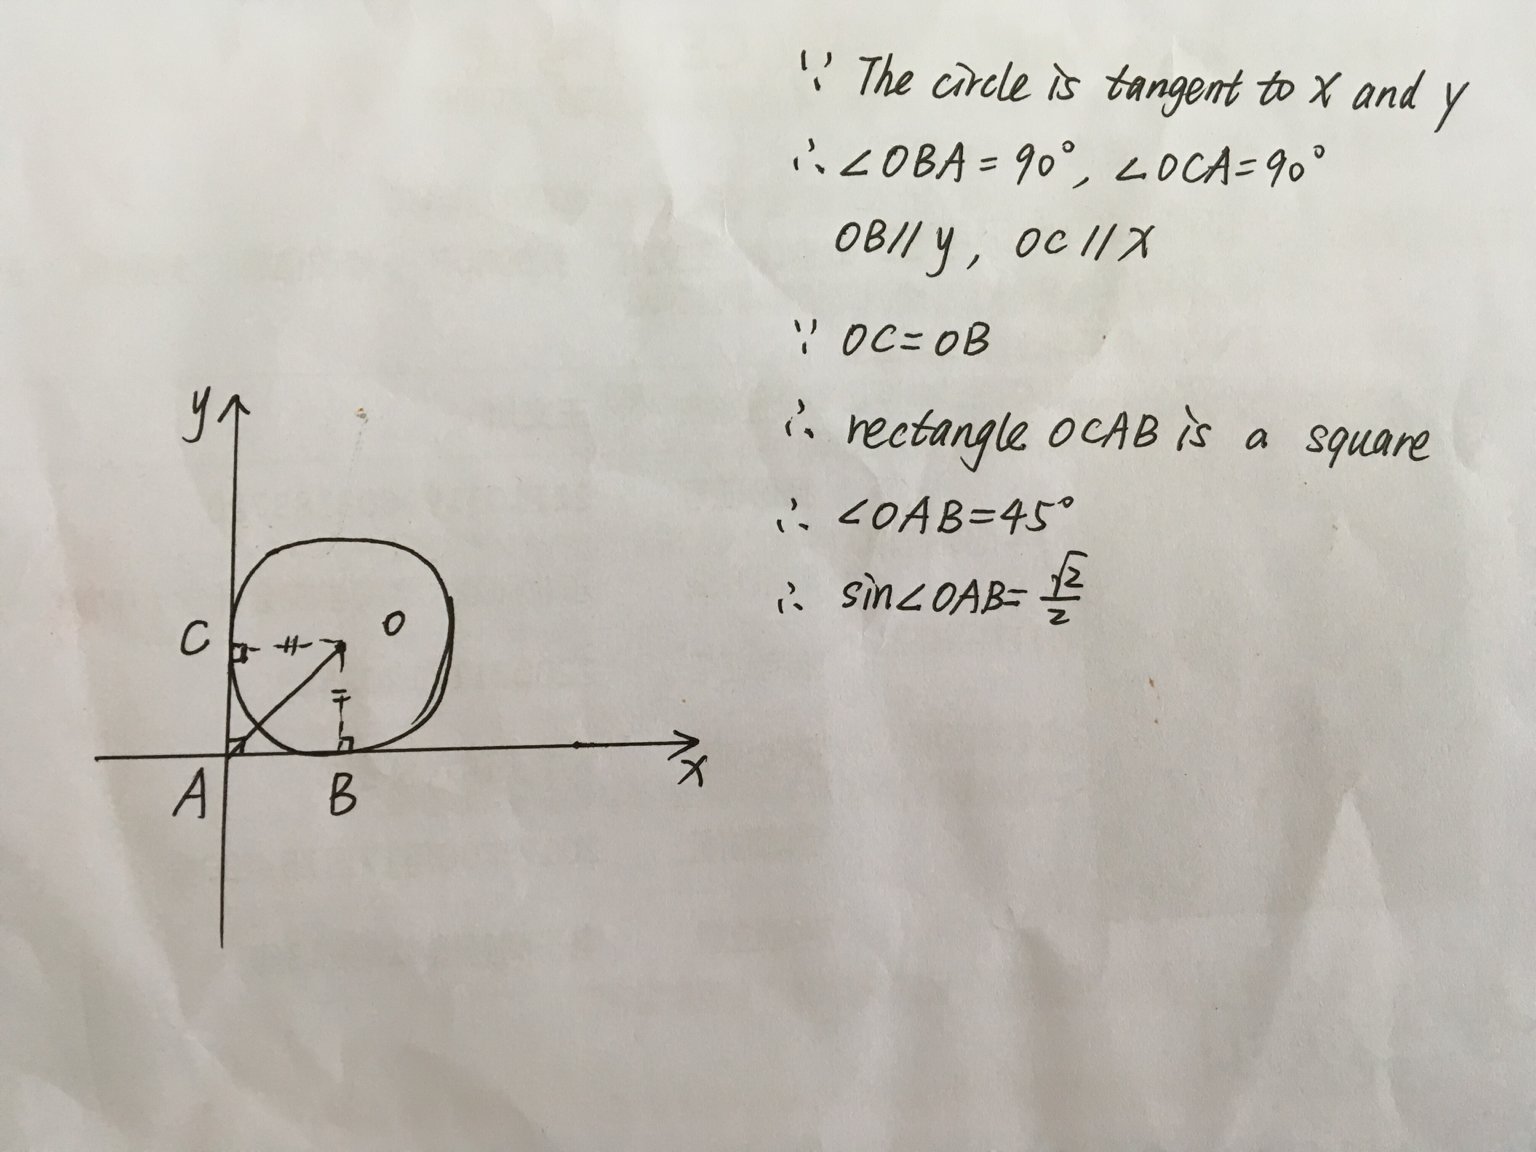 ∵ The circle is tangent to x and y
∴ ∠OBA = 90°, ∠OCA = 90°
OB // y, OC // x
∵ OC = OB
∴ rectangle OCAB is a square
∴ ∠OAB = 45°
∴ sin∠OAB = √2/2
y
C
O
A
B
x